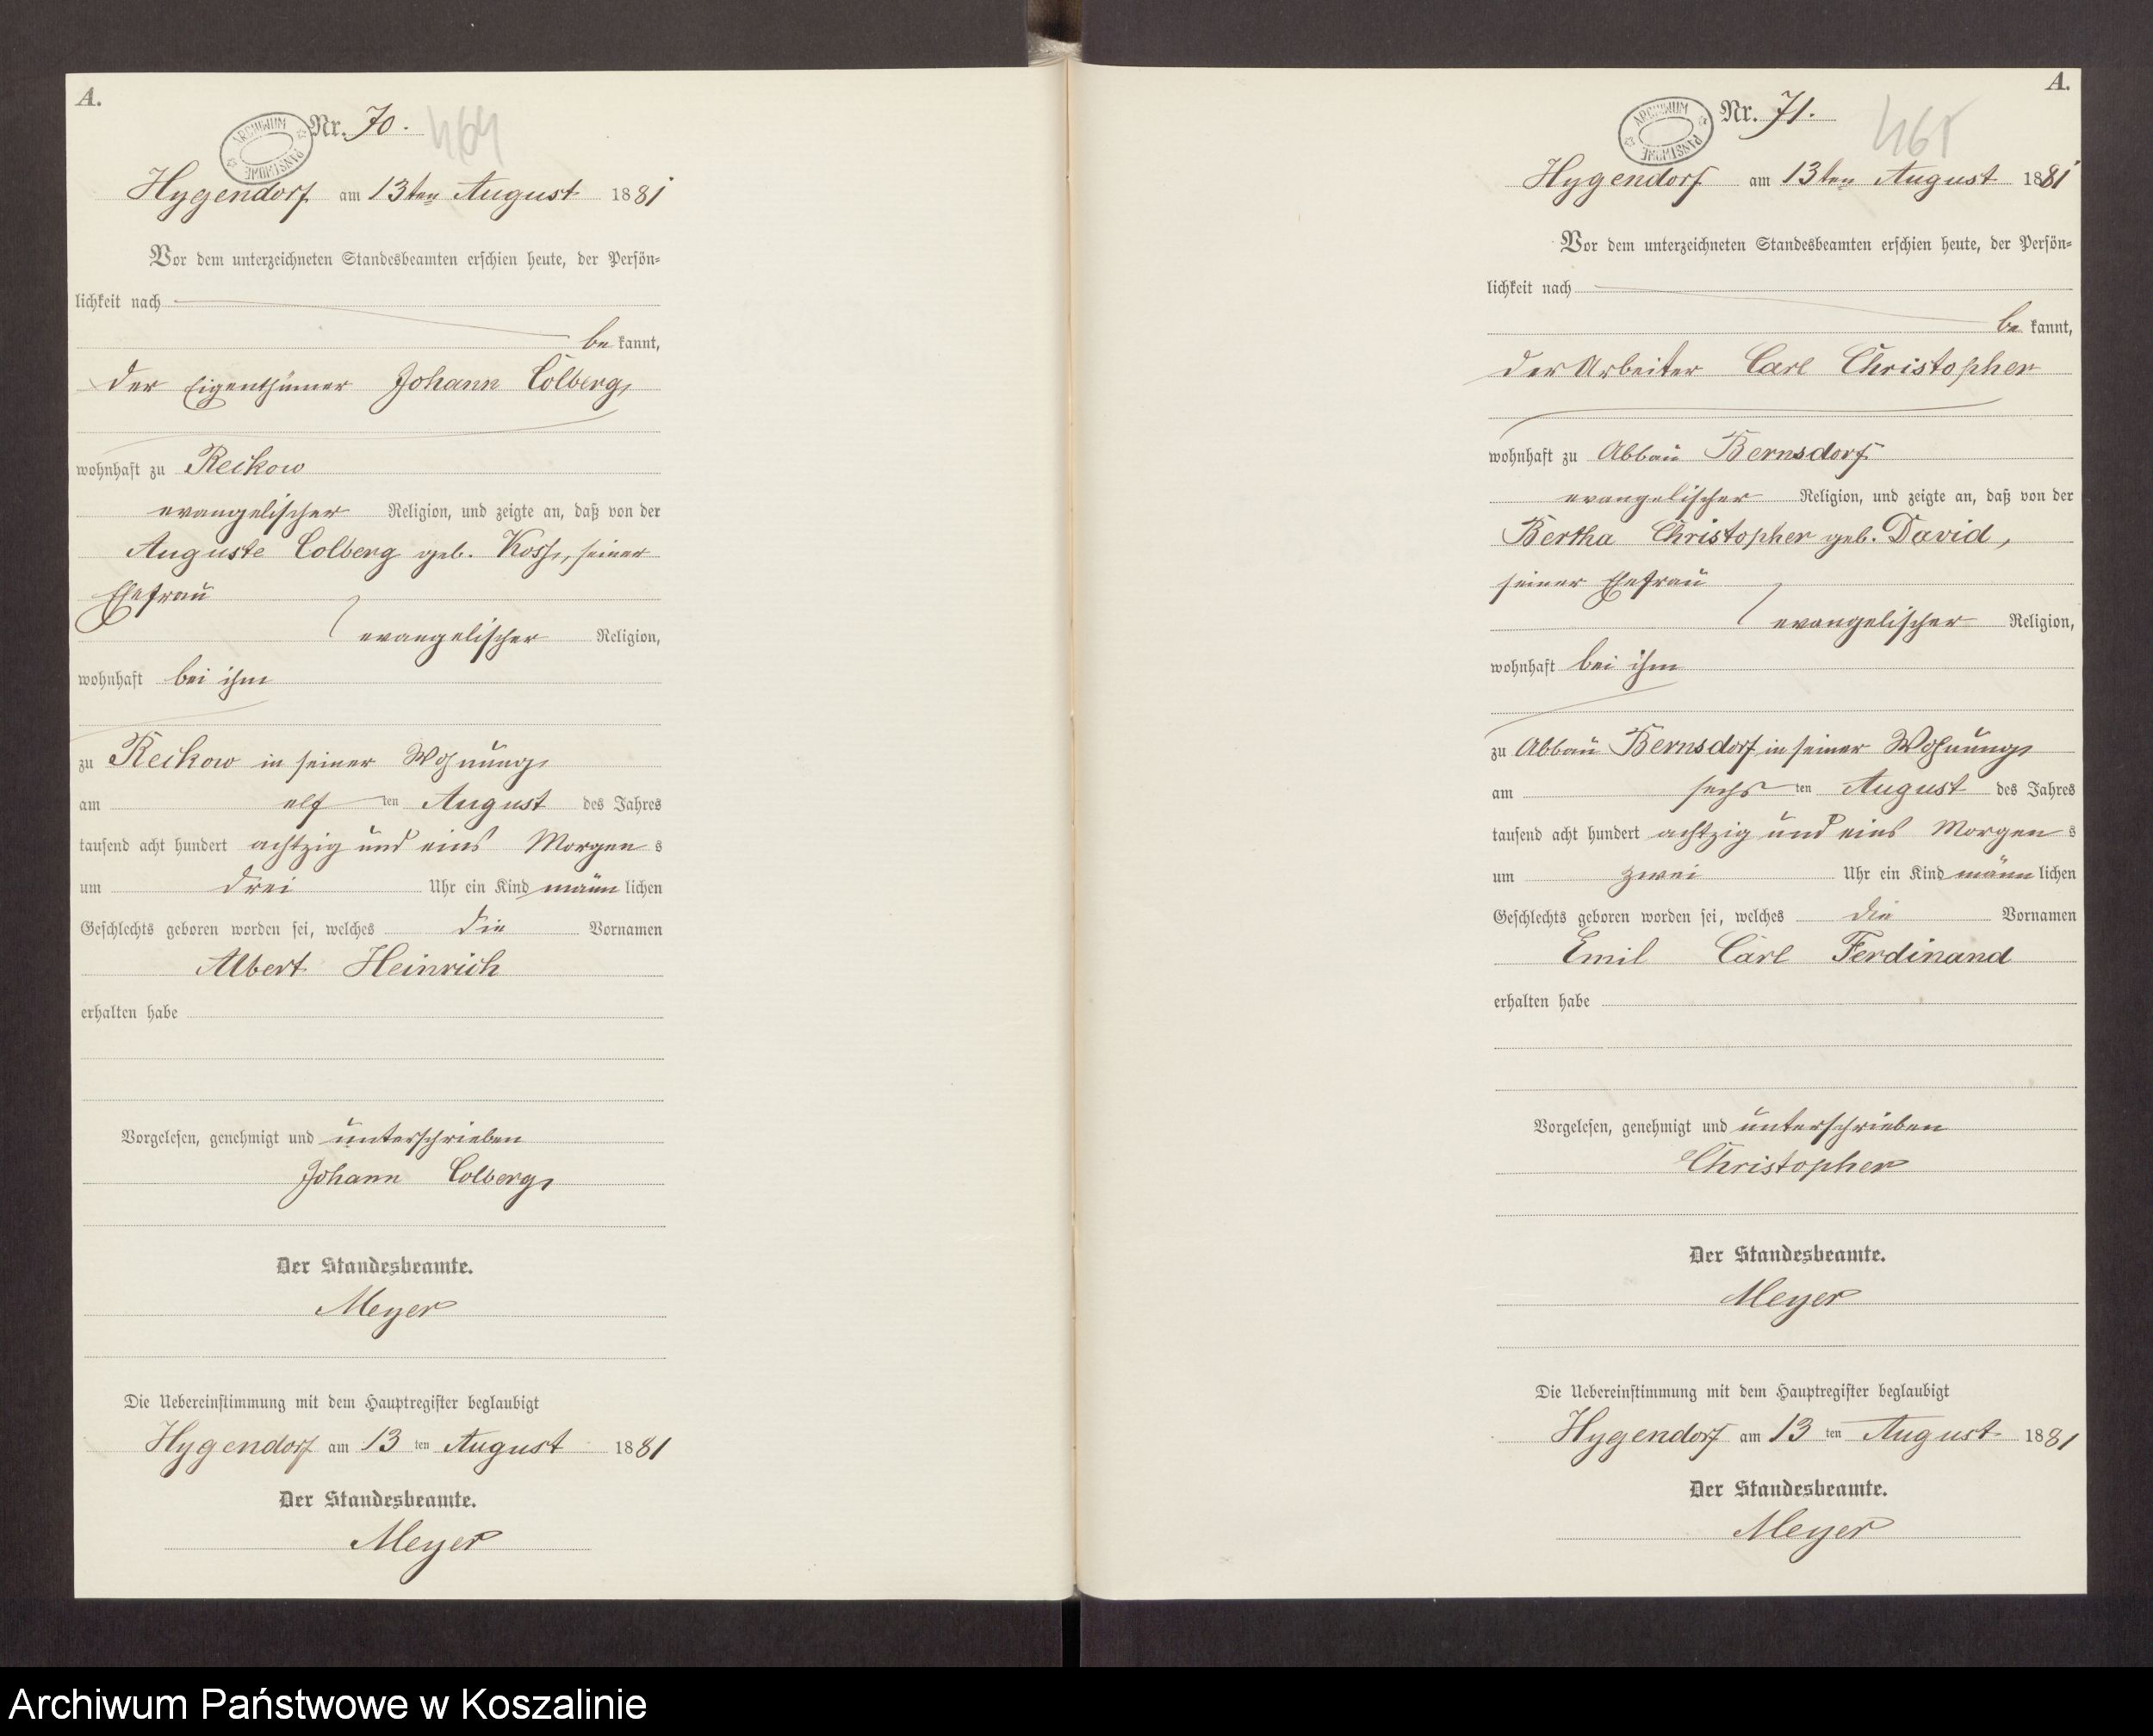 A.
ARCHIWUM PAŃSTWOWE
Nr. 70.
464
Hygendorf am 13ten August 1881
Vor dem unterzeichneten Standesbeamten erschien heute, der Persön-
lichkeit nach
be kannt,
der Eigenthümer Johann Colberg,
wohnhaft zu Reckow
evangelischer Religion, und zeigte an, daß von der
Auguste Colberg geb. Koss, seiner
Ehefrau
evangelischer Religion,
wohnhaft bei ihm
zu Reckow in seiner Wohnung,
am elf ten August des Jahres
tausend acht hundert achtzig und eins Morgen s
um drei Uhr ein Kind männ lichen
Geschlechts geboren worden sei, welches die Vornamen
Albert Heinrich
erhalten habe
Vorgelesen, genehmigt und unterschrieben
Johann Colberg,
Der Standesbeamte.
Meyer
Die Uebereinstimmung mit dem Hauptregister beglaubigt
Hygendorf am 13 ten August 1881
Der Standesbeamte.
Meyer
A.
ARCHIWUM PAŃSTWOWE
Nr. 71.
465
Hygendorf am 13ten August 1881
Vor dem unterzeichneten Standesbeamten erschien heute, der Persön-
lichkeit nach
be kannt,
der Arbeiter Carl Christopher
wohnhaft zu Abbau Bernsdorf
evangelischer Religion, und zeigte an, daß von der
Bertha Christopher geb. David,
seiner Ehefrau
evangelischer Religion,
wohnhaft bei ihm
zu Abbau Bernsdorf in seiner Wohnung,
am sechs ten August des Jahres
tausend acht hundert achtzig und eins Morgen s
um zwei Uhr ein Kind männ lichen
Geschlechts geboren worden sei, welches die Vornamen
Emil Carl Ferdinand
erhalten habe
Vorgelesen, genehmigt und unterschrieben
Christopher
Der Standesbeamte.
Meyer
Die Uebereinstimmung mit dem Hauptregister beglaubigt
Hygendorf am 13 ten August 1881
Der Standesbeamte.
Meyer
Archiwum Państwowe w Koszalinie